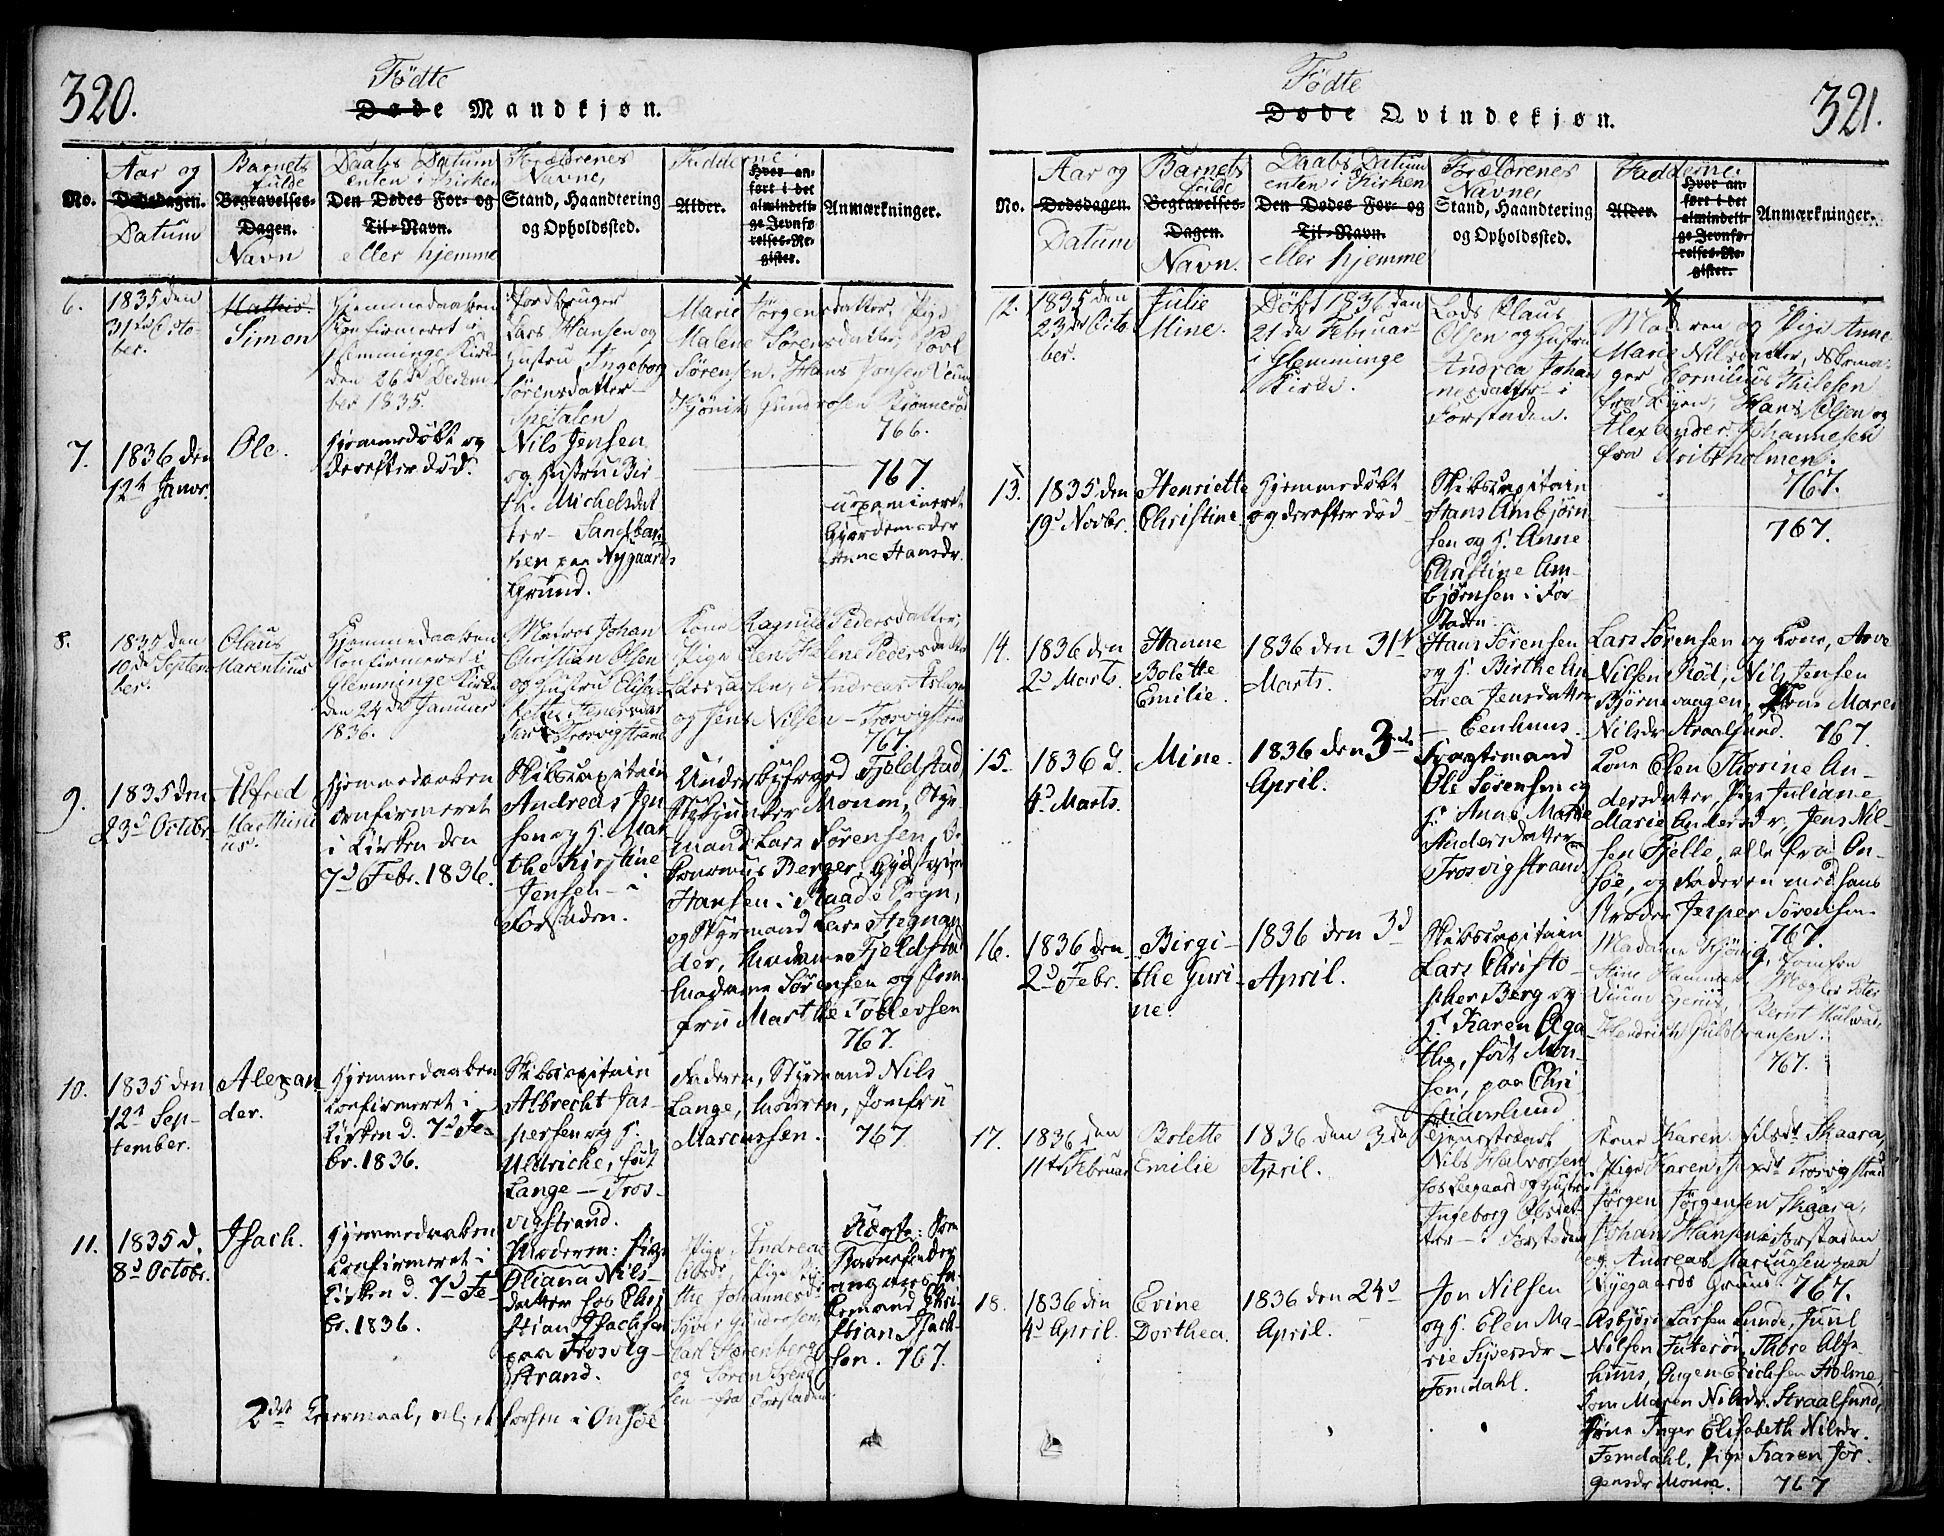 320.
Fødte
Døde Mandkjøn.
No.
Aar og
Dødsdagen.
Datum
Barnets
fulde
Begravelses-
Dagen.
Navn
Daabs Datum
enten i Kirken
Den Dødes For- og
Til-Navn.
eller hjemme
Forældrenes
Navne,
Stand, Haandtering
og Opholdssted.
Fadderne
Alder.
Hvor an-
ført i det
almindeli-
ge Jevnfø-
relses-Re-
gister.
Anmærkninger.
6.
1835 den
31te Octo-
ber.
Mathis
Simon
Hjemmedaaben
Confirmeret i
Glemminge Kirke
den 26de Decem-
ber 1835.
Jordbruger
Lars Hansen og
Hustru Ingeborg
Sørensdatter
Spetalen
Marie Jørgensdatter, Pige
Malene Sørensdatter, Povl
Sørensen, Hans Jonsen
Gundrosen
766.
7.
1836 den
12te Januar.
Ole.
Hjemmedøbt og
derefter død.
Nils Jensen
og Hustru Bir-
the Michelsdat-
ter – Sandbæk-
ken paa Nygaards
Grund.
767.
uexamineret
Gjordemoder
Anne Hansdr.
8.
1835 den
10de Septem-
ber.
Olaus
Marentius
Hjemmedaaben
Confirmeret i
Glemminge Kirke
den 24de Januar
1836.
Matros Johan
Christian Olsen
og Hustru Elisa-
beth
Trosvigstrand
Kone Ragnild Pedersdatter,
Pige Elen Helene Pedersdatter
Lars Larsen, Andreas
og Jens Nilsen – Trosvigstrand
767.
9.
1835 den
23d Octobr.
Alfred
Mathini-
us.
Hjemmedaaben
confirmeret
i Kirken den
7d Febr. 1836.
Skibscapitain
Andreas Jen-
sen og H. Mar-
the Kirstine
Jensen – i
Forstaden.
Underbyfoged Fjeldstad
Monsen, Styr-
mand Lars Sørensen,
Berger,
Hansen i Raade Sogn,
og Styrmand Lars Stegnan-
der, Madame Fjeldstad
Madame Sørensen og Jom-
fru Marthe Tollevsen
767.
10.
1835 den
12te Sep-
tember.
Alexan-
der.
Hjemmedaaben
confirmeret i
Kirken d. 7d Fe-
br. 1836.
Skibscapitain
Albrecht Jas-
persen og H.
Uldricke, født
Lange – Tros-
vigstrand.
Faderen, Styrmand Nils
Lange, Moderen, Jomfru
Marcussen. 767
11.
1835 d.
8d Octobr.
Isach.
Hjemmedaaben
Confirmeret i
Kirken d. 7d Fe-
br. 1836.
Moderen: Pige
Oliana Nils-
datter hos Chri-
stian Isachsen
paa Trosvig-
strand.
Pige Andrea
Olsdr, Pige
Johannesdr
Syver Gundrosen,
Carl
og Søren
Forstaden
Uægte: Som
Barnefader
angaves Sø-
mand Chri-
stian Isach-
sen. 767.
2det Leiermaal,
i Onsøe
321.
Fødte
Døde Qvindekjøn.
No.
Aar og
Dødsdagen.
Datum
Barnets
fulde
Begravelses-
Dagen.
Navn.
Daabs Datum
enten i Kirken
Den Dødes For- og
Til-Navn.
eller hjemme
Forældrenes
Navne,
Stand, Haandtering
og Opholdssted.
Fadderne.
Alder.
Hvor an-
ført i det
almindeli-
ge Jevnfø-
relses-Re-
gister.
Anmærkninger.
12.
1835 den
23de Octo-
ber.
Julie
Mine.
Døbt 1836 den
21de Februar
i Glemminge
Kirke.
Lods Claus
Olsen og Hustru
Andrea Johan-
nesdatter – i
Forstaden.
Moderen og Pige Anne
Marie Nilsdatter, Skrma-
ger Cornilius Thilesen
fra Byen, Hans Olsen og
Alexander Johannesen
fra Kvitsholmen.
767.
13.
1835 den
19d Novbr.
Henriette
Christine
Hjemmedøbt
og derefter død
Skibscapitain
Hans Ambjørn-
sen og H. Anne
Christine Am-
bjørnsen i For-
staden
767.
14.
1836 den
2d Marts.
Hanne
Bolette
Emilie.
1836 den 31te
Marts.
Hans Sørensen
og H. Birthe An-
drea Jensdatter
– Eenhuus.
Lars Sørensen og Kone, Arve
Nilsen Rød, Nils Jensen
Bjørnevaagen, Kone Maren
Nilsdr Straalsund. 767.
15.
1836 d.
4d Marts.
Mine.
1836 den 3de
April.
Fragtemand
Ole Sørensen og
H. Anne Marthe
Andersdatter
Trosvigstrand
Kone Elen Thorine An-
dersdatter, Pige Juliane
Marie Andersdr, Jens Nil-
sen Fjelle, alle fra On-
søe, og Faderen med hans
Broder Jesper Sørensen.
767.
16.
1836 den
2d Febr.
Birgi-
the Guri-
ne.
1836 den 3d
April.
Skibscapitain
Lars Christo-
pher Berg og
H. Karen Aga-
the, født Mon-
sen, paa Chri-
stianslund
Madame
Stine Hammer, Jomfru
Mægler Peter
Bernt
Hendrich Guldbransen.
767.
17.
1836 den
11te Februar
Bolette
Emilie
1836 den 3die
April.
Tjenestedreng
Nils Halvorsen
hos Leegaard og Hustru
Ingeborg Olsdat-
ter – i Forstaden
Kone Karen Nilsdr Skaara,
Pige Karen Trosvigstrand
Jørgen Jørgensen Skaara,
Johan Hansen i Forstaden
og Andreas Marcusen paa
Nygaards Grund 767.
18.
1836 den
4d April.
Evine
Dorthea.
1836 den 24d
April.
Jon Nilsen
og H. Elen Ma-
rie Syversdr –
Femdahl.
Asbjørn Larsen Lunde, Juul
Nilsen Futerøn, Thore Alfs-
huus, Aagen Erichsen Holme,
Kone Maren Nilsdr. Straalsund,
Kone Inger Elisabeth Nilsdr.
Femdahl, Pige Karen Jør-
gensdr Moum. 767